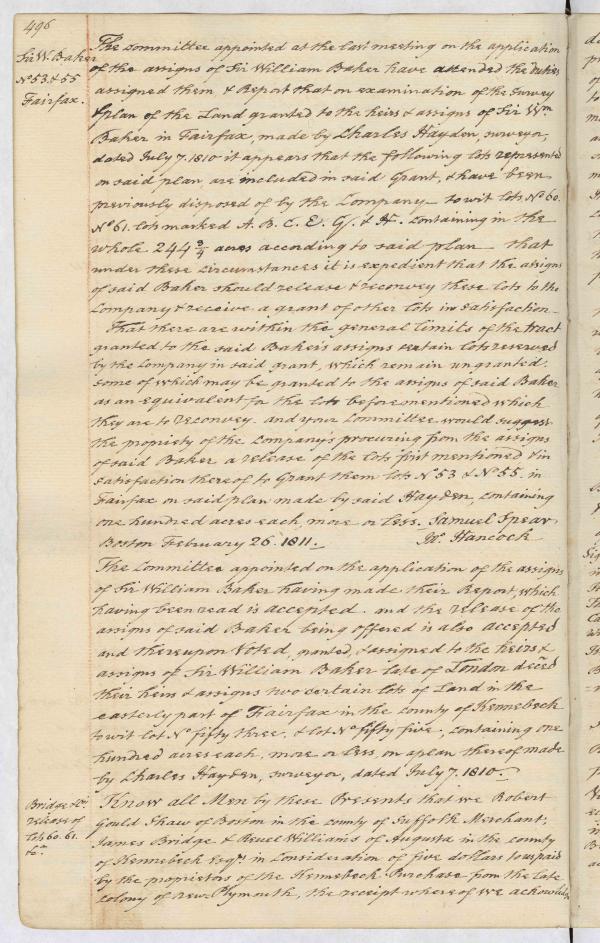 496
Sir W. Baker
No 53 & 55
Fairfax.
The Committee appointed at the last meeting on the application
of the assigns of Sir William Baker have attended the duties
assigned them & Report that on examination of the survey
& plan of the Land granted to the heirs & assigns of Sir Wm
Baker in Fairfax, made by Charles Hayden, surveyor,
dated July 7. 1810 it appears that the following lots represented
on said plan, are included in said Grant, & have been
previously disposed of by the Company — to wit lots No 60.
No 61. lots marked A. B. C. E. G. & H. containing in the
whole 244 3/4 acres according to said plan — that
under these circumstances it is expedient that the assigns
of said Baker should release & reconvey these lots to the
Company & receive a grant of other lots in satisfaction —
That there are within the general limits of the tract
granted to the said Baker's assigns certain lots reserved
by the Company in said grant, which remain ungranted.
some of which may be granted to the assigns of said Baker
as an equivalent for the lots beforementioned which
they are to reconvey. and your Committee would suggest
the propriety of the Company's procuring from the assigns
of said Baker a release of the lots first mentioned & in
satisfaction thereof to Grant them lots No 53 & No 55. in
Fairfax on said plan made by said Hayden, containing
one hundred acres each, more or less. Samuel Spear
Boston February 26. 1811. Jno. Hancock
The Committee appointed on the application of the assigns
of Sir William Baker having made their Report, which
having been read is accepted. and the release of the
assigns of said Baker being offered is also accepted
and thereupon Voted, granted, & assigned to the heirs &
assigns of Sir William Baker late of London deced
their heirs & assigns two certain lots of Land in the
easterly part of Fairfax in the county of Kennebeck
to wit lot No fifty three, & lot No fifty five, containing one
hundred acres each, more or less, on a plan thereof made
by Charles Hayden, surveyor, dated July 7. 1810.
Bridge &
release of
lots 60. 61.
&c
Know all Men by these Presents that we Robert
Gould Shaw of Boston in the county of Suffolk Merchant;
James Bridge & Reuel Williams of Augusta in the county
of Kennebeck Esqrs. in consideration of five dollars to us paid
by the proprietors of the Kennebeck Purchase from the late
colony of new Plymouth, the receipt whereof we acknowledge